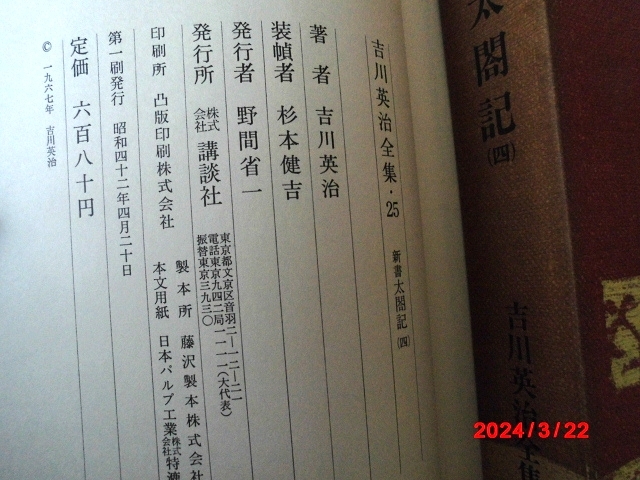 吉川英治全集・25 新書太閤記(四)
著者 吉川英治
装幀者 杉本健吉
発行者 野間省一
発行所 株式会社 講談社
東京都文京区音羽二—一二—二一
電話東京九四二局一一一一(大代表)
振替東京三九三〇
印刷所 凸版印刷株式会社
製本所 藤沢製本株式会社
本文用紙 日本パルプ工業株式会社特漉
第一刷発行 昭和四十二年四月二十日
定価 六百八十円
© 一九六七年 吉川英治
太閤記(四)
吉川英治全集
2024/3/22